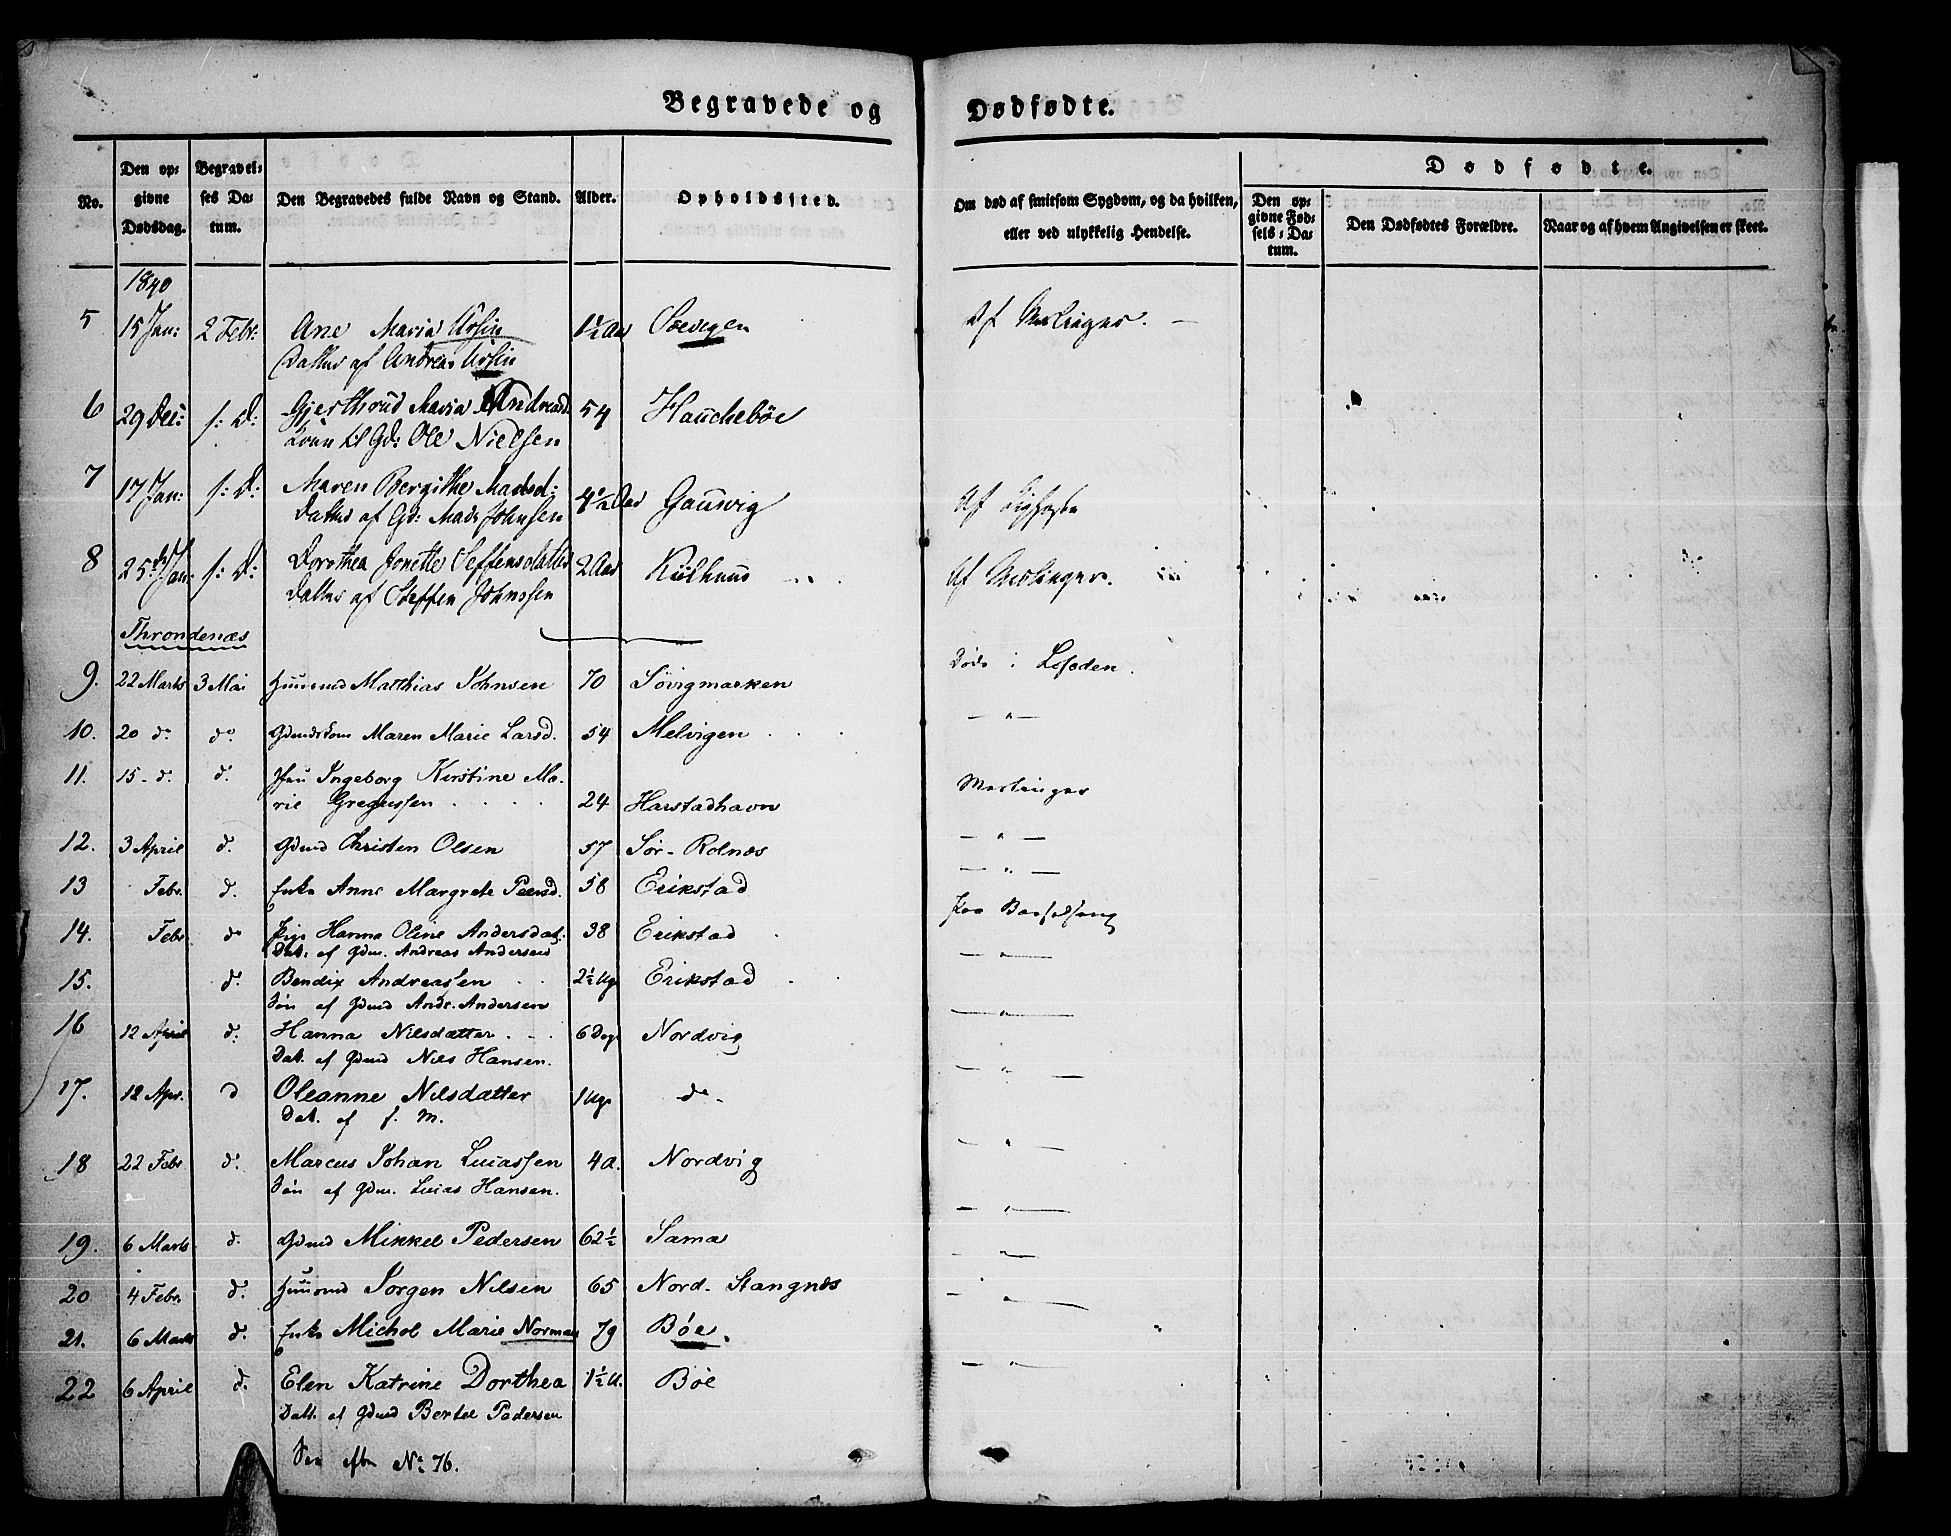 Begravede og Dødfødte.
No. Den opgivne Dødsdag. Begravelses Datum. Den Begravedes fulde Navn og Stand. Alder. Opholdssted. Om død af smitsom Sygdom, og da hvilken, eller ved ulykkelig Hendelse. Dødfødte. Den opgivne Fødsels-Datum. Den Dødfødtes Forældre. Naar og af hvem Angivelsen er skeet.
1840
5 15 Jan: 2 Febr: Ane Maria Ursin 1½ Aar Soevigen Af Meslinger. —
Datter af Andreas Ursin
6 29 Dec: f: D: Gjerthrud Maria Andreasd. 54 Hauchebøe
Kone til Gd: Ole Nielsen
7 17 Jan: f: D: Maren Bergithe Madsd: 4½ Aar Gausvig Af
Datter af Gd: Mads Johnsen
8 25de Jan: f: D: Dorothea Jonette Steffensdatter 2 Aar Kiilhuus Af Meslinger.
Datter af Steffen Johnssen
Throndenæs
9. 22 Marts 3 Mai Huusmd Matthias Johnsen 70 Søvigmarken Døde i Lofoden.
10. 20 do do Gdmdskone Maren Marie Larsd. 54 Melvigen — " —
11. 15 - d. d. Fru Ingeborg Kirstine Ma-
rie Gregussen 24 Harstadhavn Meslinger
12. 3 April d. Gdmd Christen Olsen 57 Sør-Rolnæs — " —
13 Febr. d. Enke Anne Margrete Peersd. 58 Erikstad — " —
14. Febr do Pige Hanna Oline Andersdat: 38 Erikstad Paa Barselseng
Dat: af Gdm. Andreas Andersen
15. d. Bendix Andreassen 2½ Ug Erikstad — " —
Søn af Gdmd Andr. Andersen
16 12 April d. Hanna Nilsdatter 6 Dag Nordvig — " —
Dat. af Gdmd Nils Hansen.
17. 12 Apr. d Oleanne Nilsdatter 1 Ug. do. — " —
Dat. af f. M.
18 22 Febr d. Marcus Johan Lucassen 4 a. Nordvig — " —
Søn af Gdm. Lucas Hansen.
19. 6 Marts d. Gdmd Mikkel Pedersen 62½ Sama — " —
20 4 Febr. d. Huusmd Jørgen Nilsen 65 Nord-Stangnæs — " —
21. 6 Marts d. Enke Michol Marie Norman 79 Bøe. — " —
22 6 April d. Elen Katrine Dorthea 1½ A. Bøe — " —
Datt. af Gdmd Bertel Pedersen
See efter No 76.